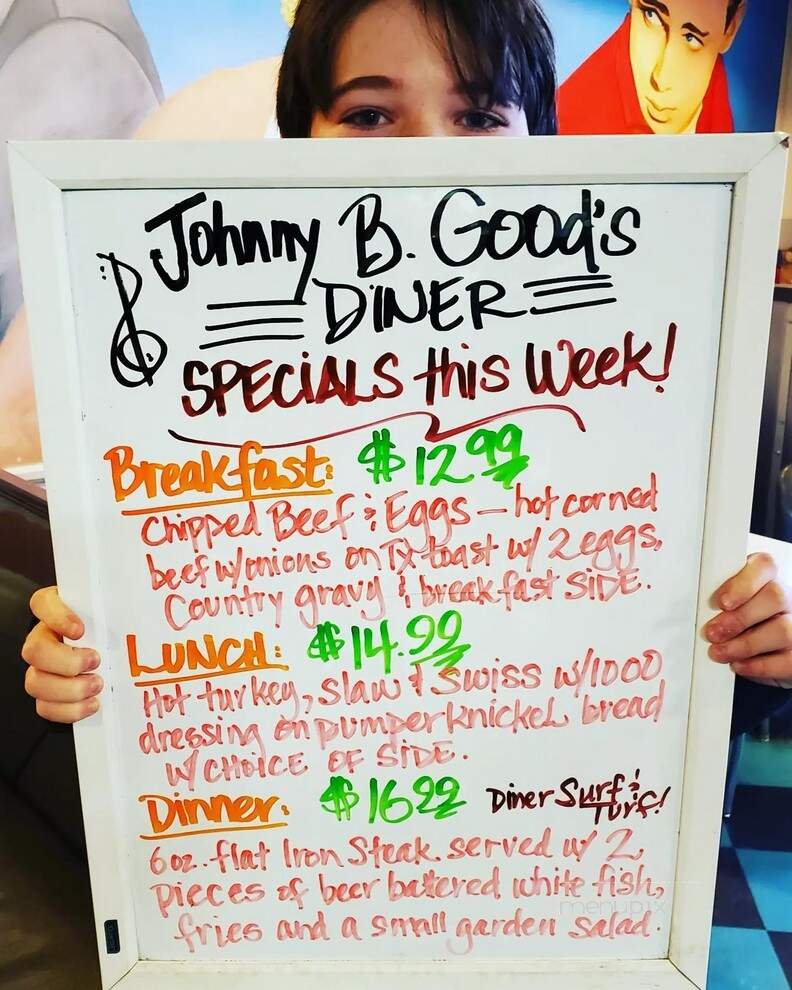 Johnny B. Good's
DINER
SPECIALS this Week!
Breakfast: $12.99
Chipped Beef & Eggs - hot corned
beef w/onions on Tx toast w/ 2 eggs,
Country gravy & breakfast SIDE.
LUNCH: $14.99
Hot turkey, slaw & Swiss w/1000
dressing on pumperknickel bread
w/ CHOICE OF SIDE.
Dinner: $16.99 Diner Surf &
Turf!
6oz. flat Iron Steak served w/ 2
pieces of beer battered white fish,
fries and a small garden salad.
menupix